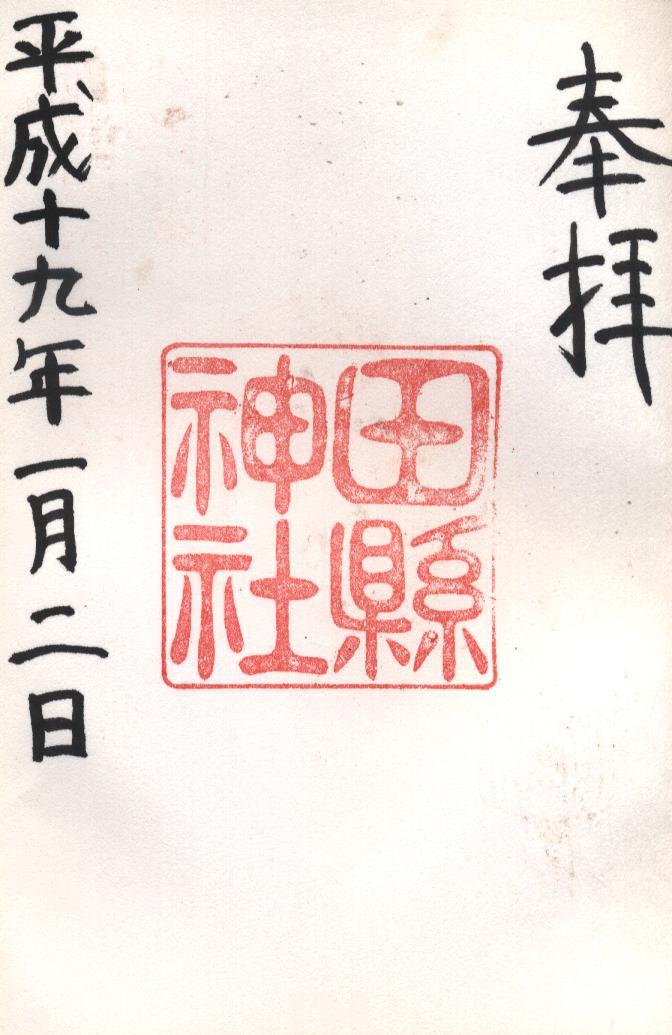 奉拝
田縣
神社
平成十九年一月二日